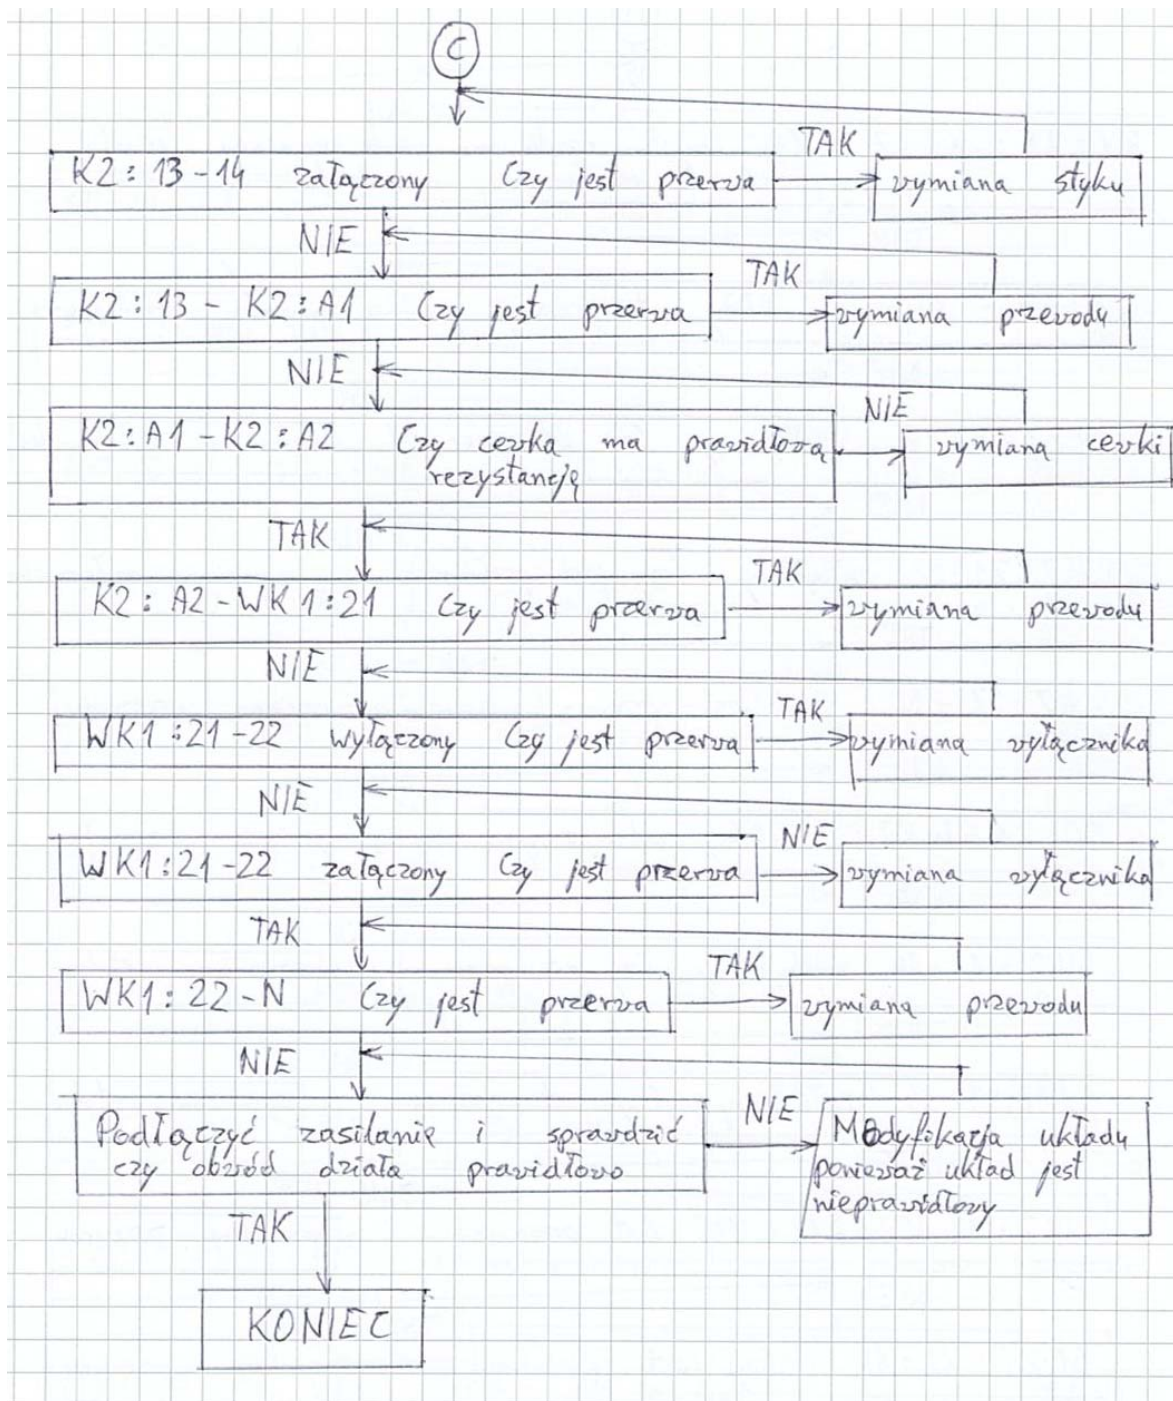 C
TAK
K2: 13-14 załączony Czy jest przerwa
wymiana styku
NIE
TAK
K2: 13 - K2: A1 Czy jest przerwa
wymiana przewodu
NIE
NIE
K2: A1 - K2: A2 Czy cewka ma prawidłową
rezystancję
wymiana cewki
TAK
TAK
K2: A2 - WK1: 21 Czy jest przerwa
wymiana przewodu
NIE
TAK
WK1: 21-22 wyłączony Czy jest przerwa
wymiana wyłącznika
NIE
NIE
WK1: 21-22 załączony Czy jest przerwa
wymiana wyłącznika
TAK
TAK
WK1: 22-N Czy jest przerwa
wymiana przewodu
NIE
NIE
Podłączyć zasilanie i sprawdzić
czy obwód działa prawidłowo
Modyfikacja układu
ponieważ układ jest
nieprawidłowy
TAK
KONIEC